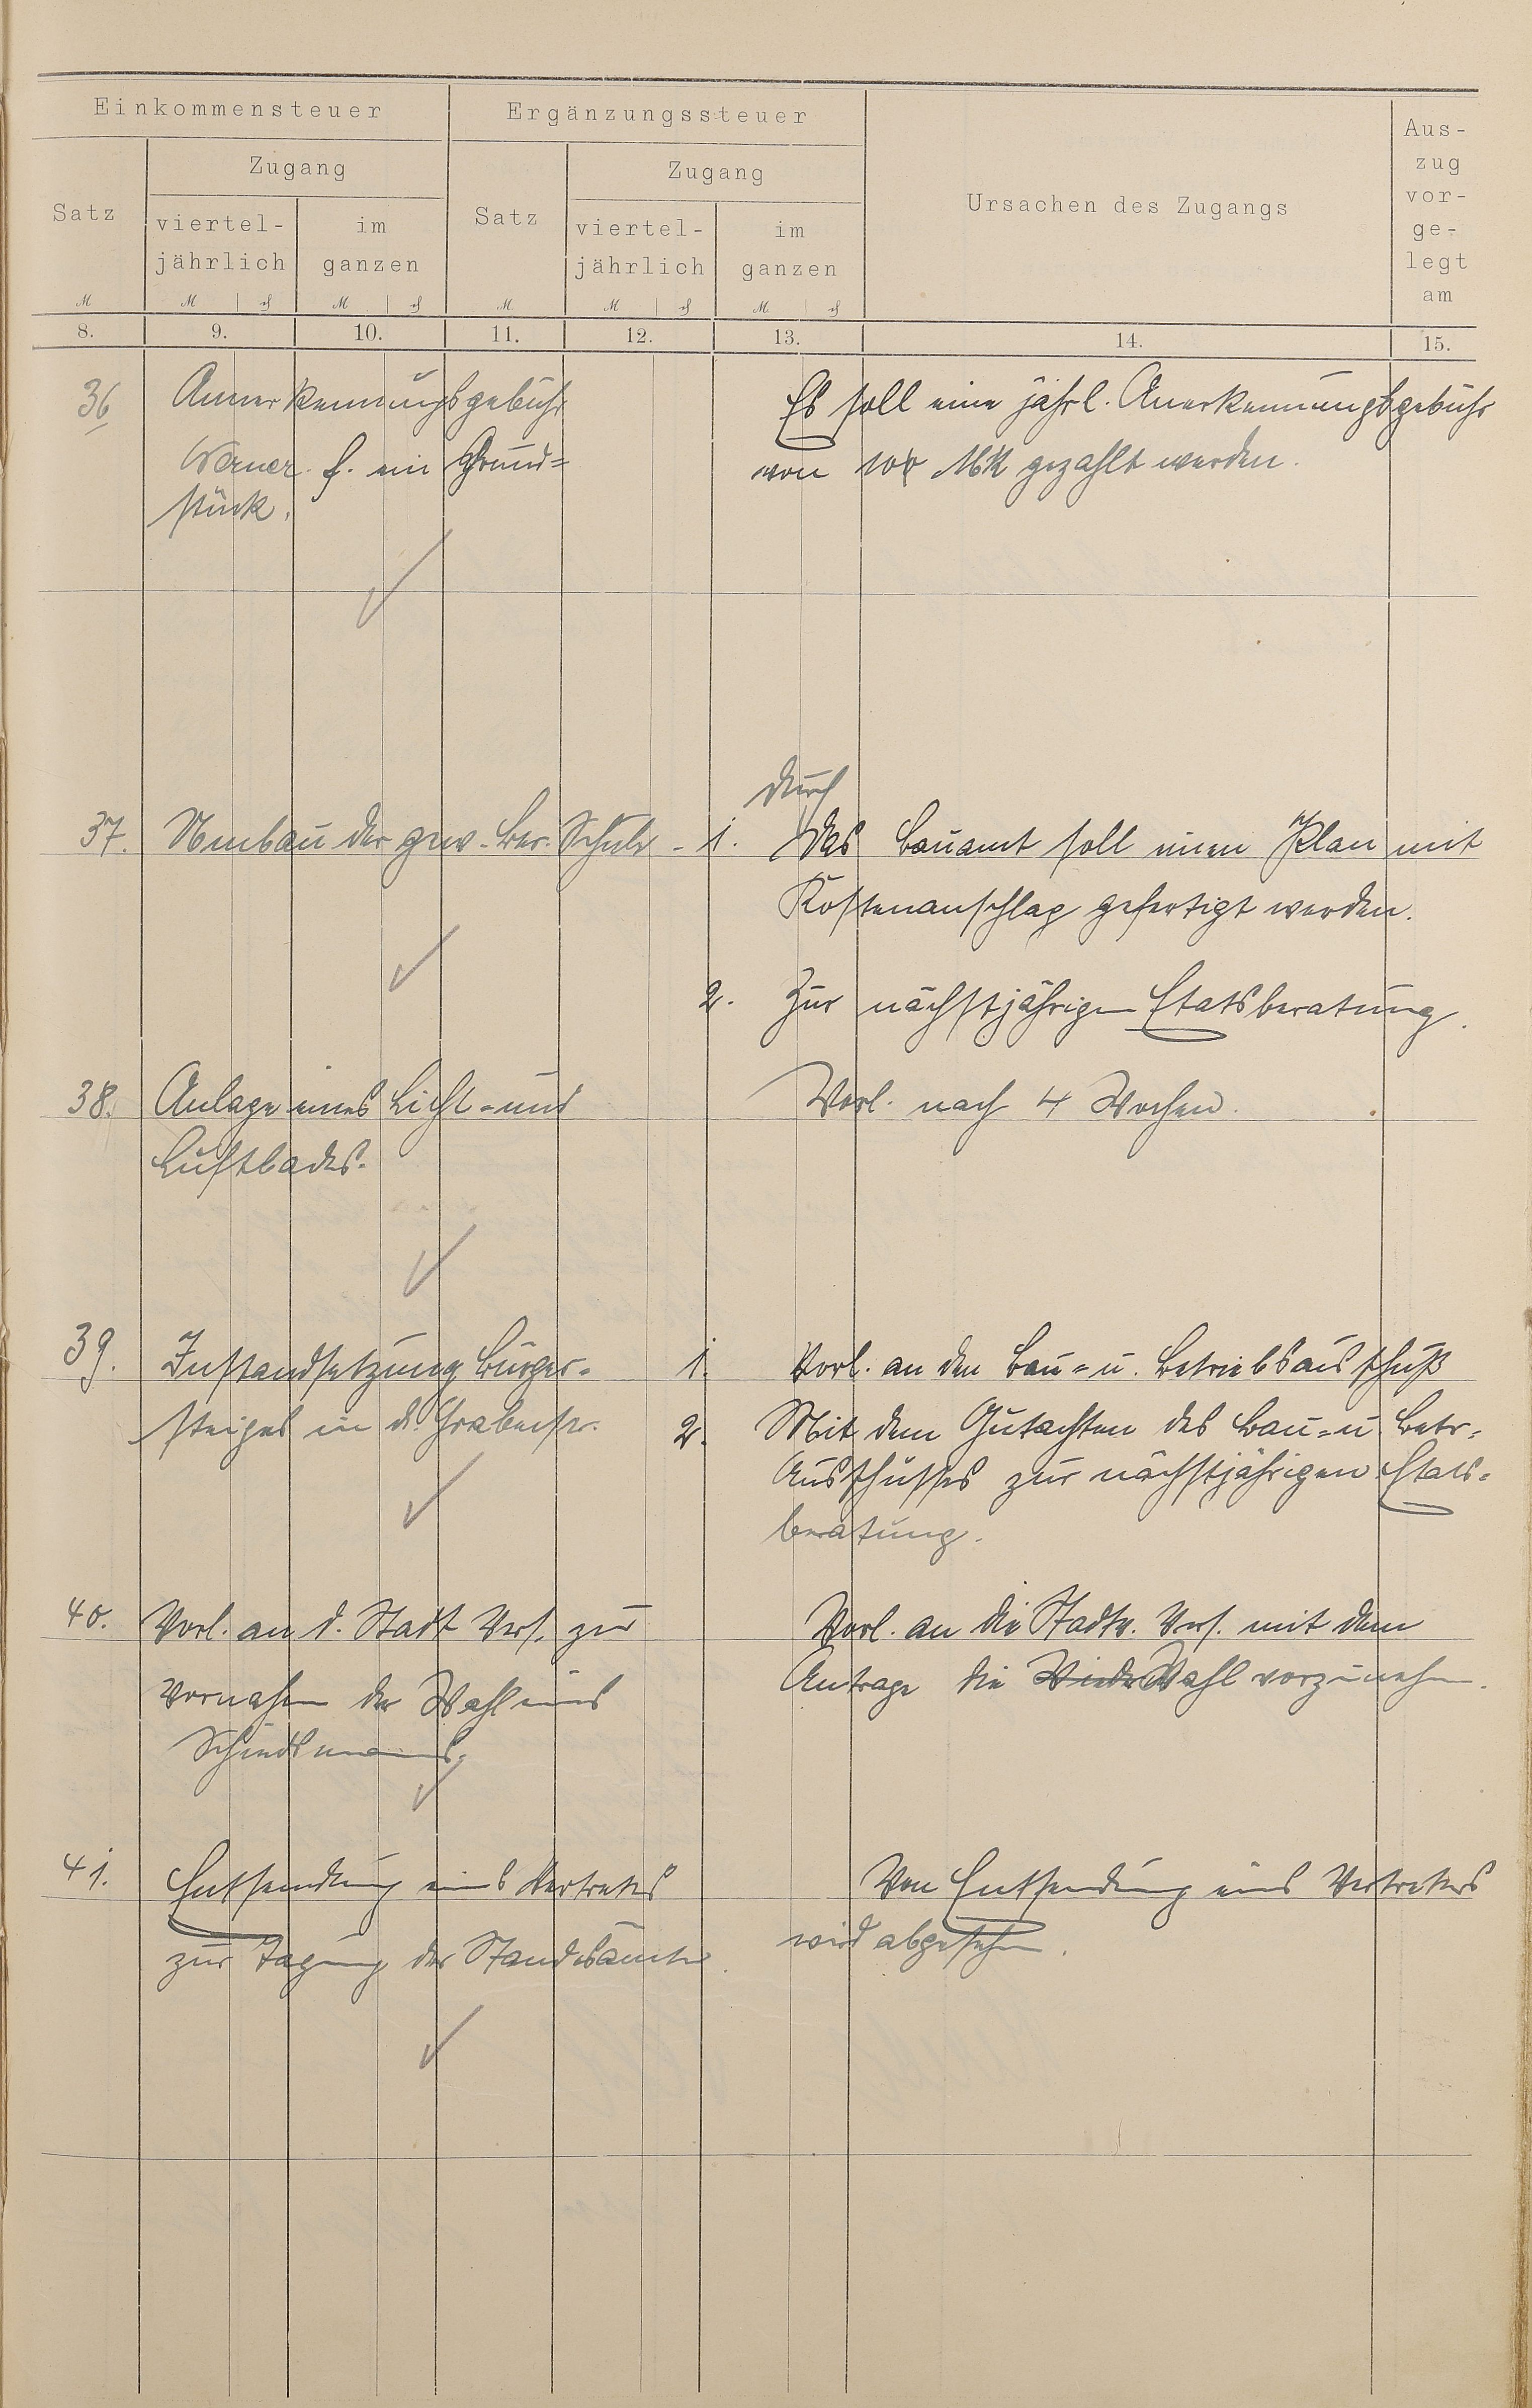 Einkommensteuer Ergänzungssteuer
Ursachen des Zugangs
Aus-
zug
vor-
ge-
legt
am
Satz Zugang Satz Zugang
viertel-
jährlich
im
ganzen
viertel-
jährlich
im
ganzen
M M ₰ M ₰ M M ₰ M ₰
8. 9. 10. 11. 12. 13. 14. 15.
36 Anerkennungsgebühr
Werner f. ein Grund=
stück.
Es soll eine jährl. Anerkennungsgebühr
von Mk gezahlt werden.
37. der gew. Ber. Schule - 1. durch
das Bauamt soll einen Plan mit
Kostenanschlag gefertigt werden.
2. Zur nächstjährigen Etatsberatung.
38. Anlage eines Licht- und
Luftbades.
Vorl. nach 4 Wochen.
39. Instandsetzung Bürger-
steiges in d. Grabenstr.
1. Vorl. an den Bau- u. Betriebsausschuß
2. Mit dem Gutachten des Bau- u Betr.
Ausschusses zur nächstjährigen Etats-
beratung.
40. Vorl. an d. Stadt Vers. zur
Vornahme der Wahl eines
Schiedsmanns.
Vorl. an die Stadtv. Vers. mit dem
Antrage die Wieder Wahl vorzunehmen.
41. Entsendung eines Vertreters
zur Tagung der Standesämter.
Von Entsendung eines Vertreters
wird abgesehen.